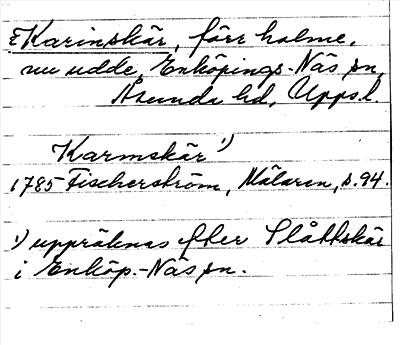 Karinskär, förr holme,
nu udde, Enköpings-Näs sn,
Åsunda hd, Uppsl.
Karmskär¹⁾
1785 Fischerström, Mälaren, s. 94.
¹⁾ uppräknas efter Slåttskär
i Enköp.-Näs sn.